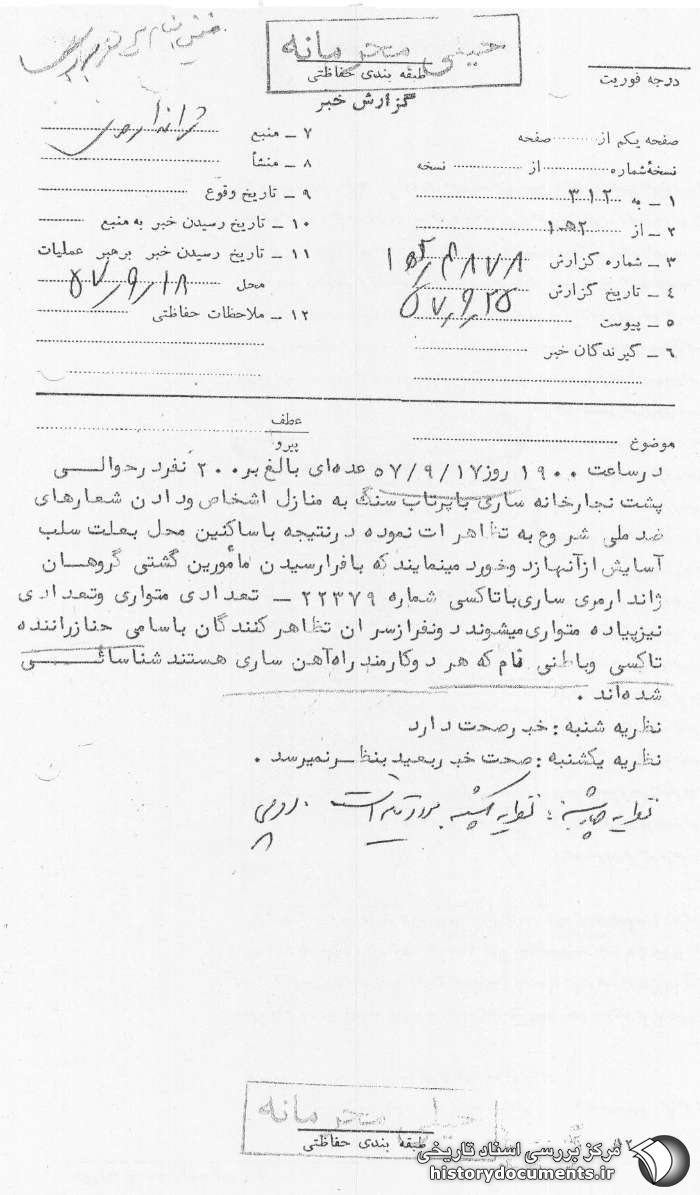 خیلی محرمانه
طبقه بندی حفاظتی
گزارش خبر
درجه فوریت
صفحه یکم از صفحه
نسخهٔ شماره از نسخه
۱ ـ به ۳۱۲
۲ ـ از ۱۰ه۲
۳ ـ شماره گزارش ۱۰ه۲/۴۸۷۸
۴ ـ تاریخ گزارش ۵۷/۹/۲۵
۵ ـ پیوست
۶ ـ گیرندگان خبر
۷ ـ منبع ژاندارمری
۸ ـ منشأ
۹ ـ تاریخ وقوع
۱۰ ـ تاریخ رسیدن خبر به منبع
۱۱ ـ تاریخ رسیدن خبر برهبر عملیات
محل ۵۷/۹/۱۸
۱۲ ـ ملاحظات حفاظتی
موضوع
عطف
پیرو
درساعت ۱۹۰۰ روز ۵۷/۹/۱۷ عده‌ای بالغ بر ۲۰۰ نفر در حوالی
پشت نجارخانه ساری با پرتاب سنگ به منازل اشخاص و دادن شعارهای
ضد ملی شروع به تظاهرات نموده در نتیجه با ساکنین محل بعلت سلب
آسایش از آنها زد و خورد مینمایند که با فرا رسیدن مأمورین گشتی گروهان
ژاندارمری ساری با تاکسی شماره ۲۲۳۷۹ ـ تعدادی متواری و تعدادی
نیز پیاده متواری میشوند دو نفر از سران تظاهر کنندگان باسامی حناز راننده
تاکسی و باطنی فام که هر دو کارمند راه‌آهن ساری هستند شناسائی
شده‌اند .
نظریه شنبه : خبر صحت دارد
نظریه یکشنبه : صحت خبر بعید بنظر نمیرسد .
نظریه چهارشنبه : نظریه یکشنبه مورد تأیید است .
خیلی محرمانه
طبقه بندی حفاظتی
مرکز بررسی اسناد تاریخی
historydocuments.ir